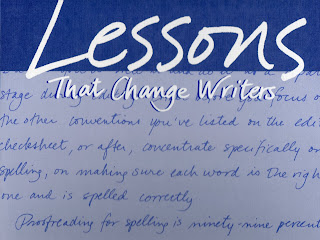 Lessons
That Change Writers
stage during
focus o
the other conventions you've listed on the edit
checksheet, or after, concentrate specifically on
spelling, on making sure each word is the righ
one and is spelled correctly
Proofreading for spelling is ninety-nine percent